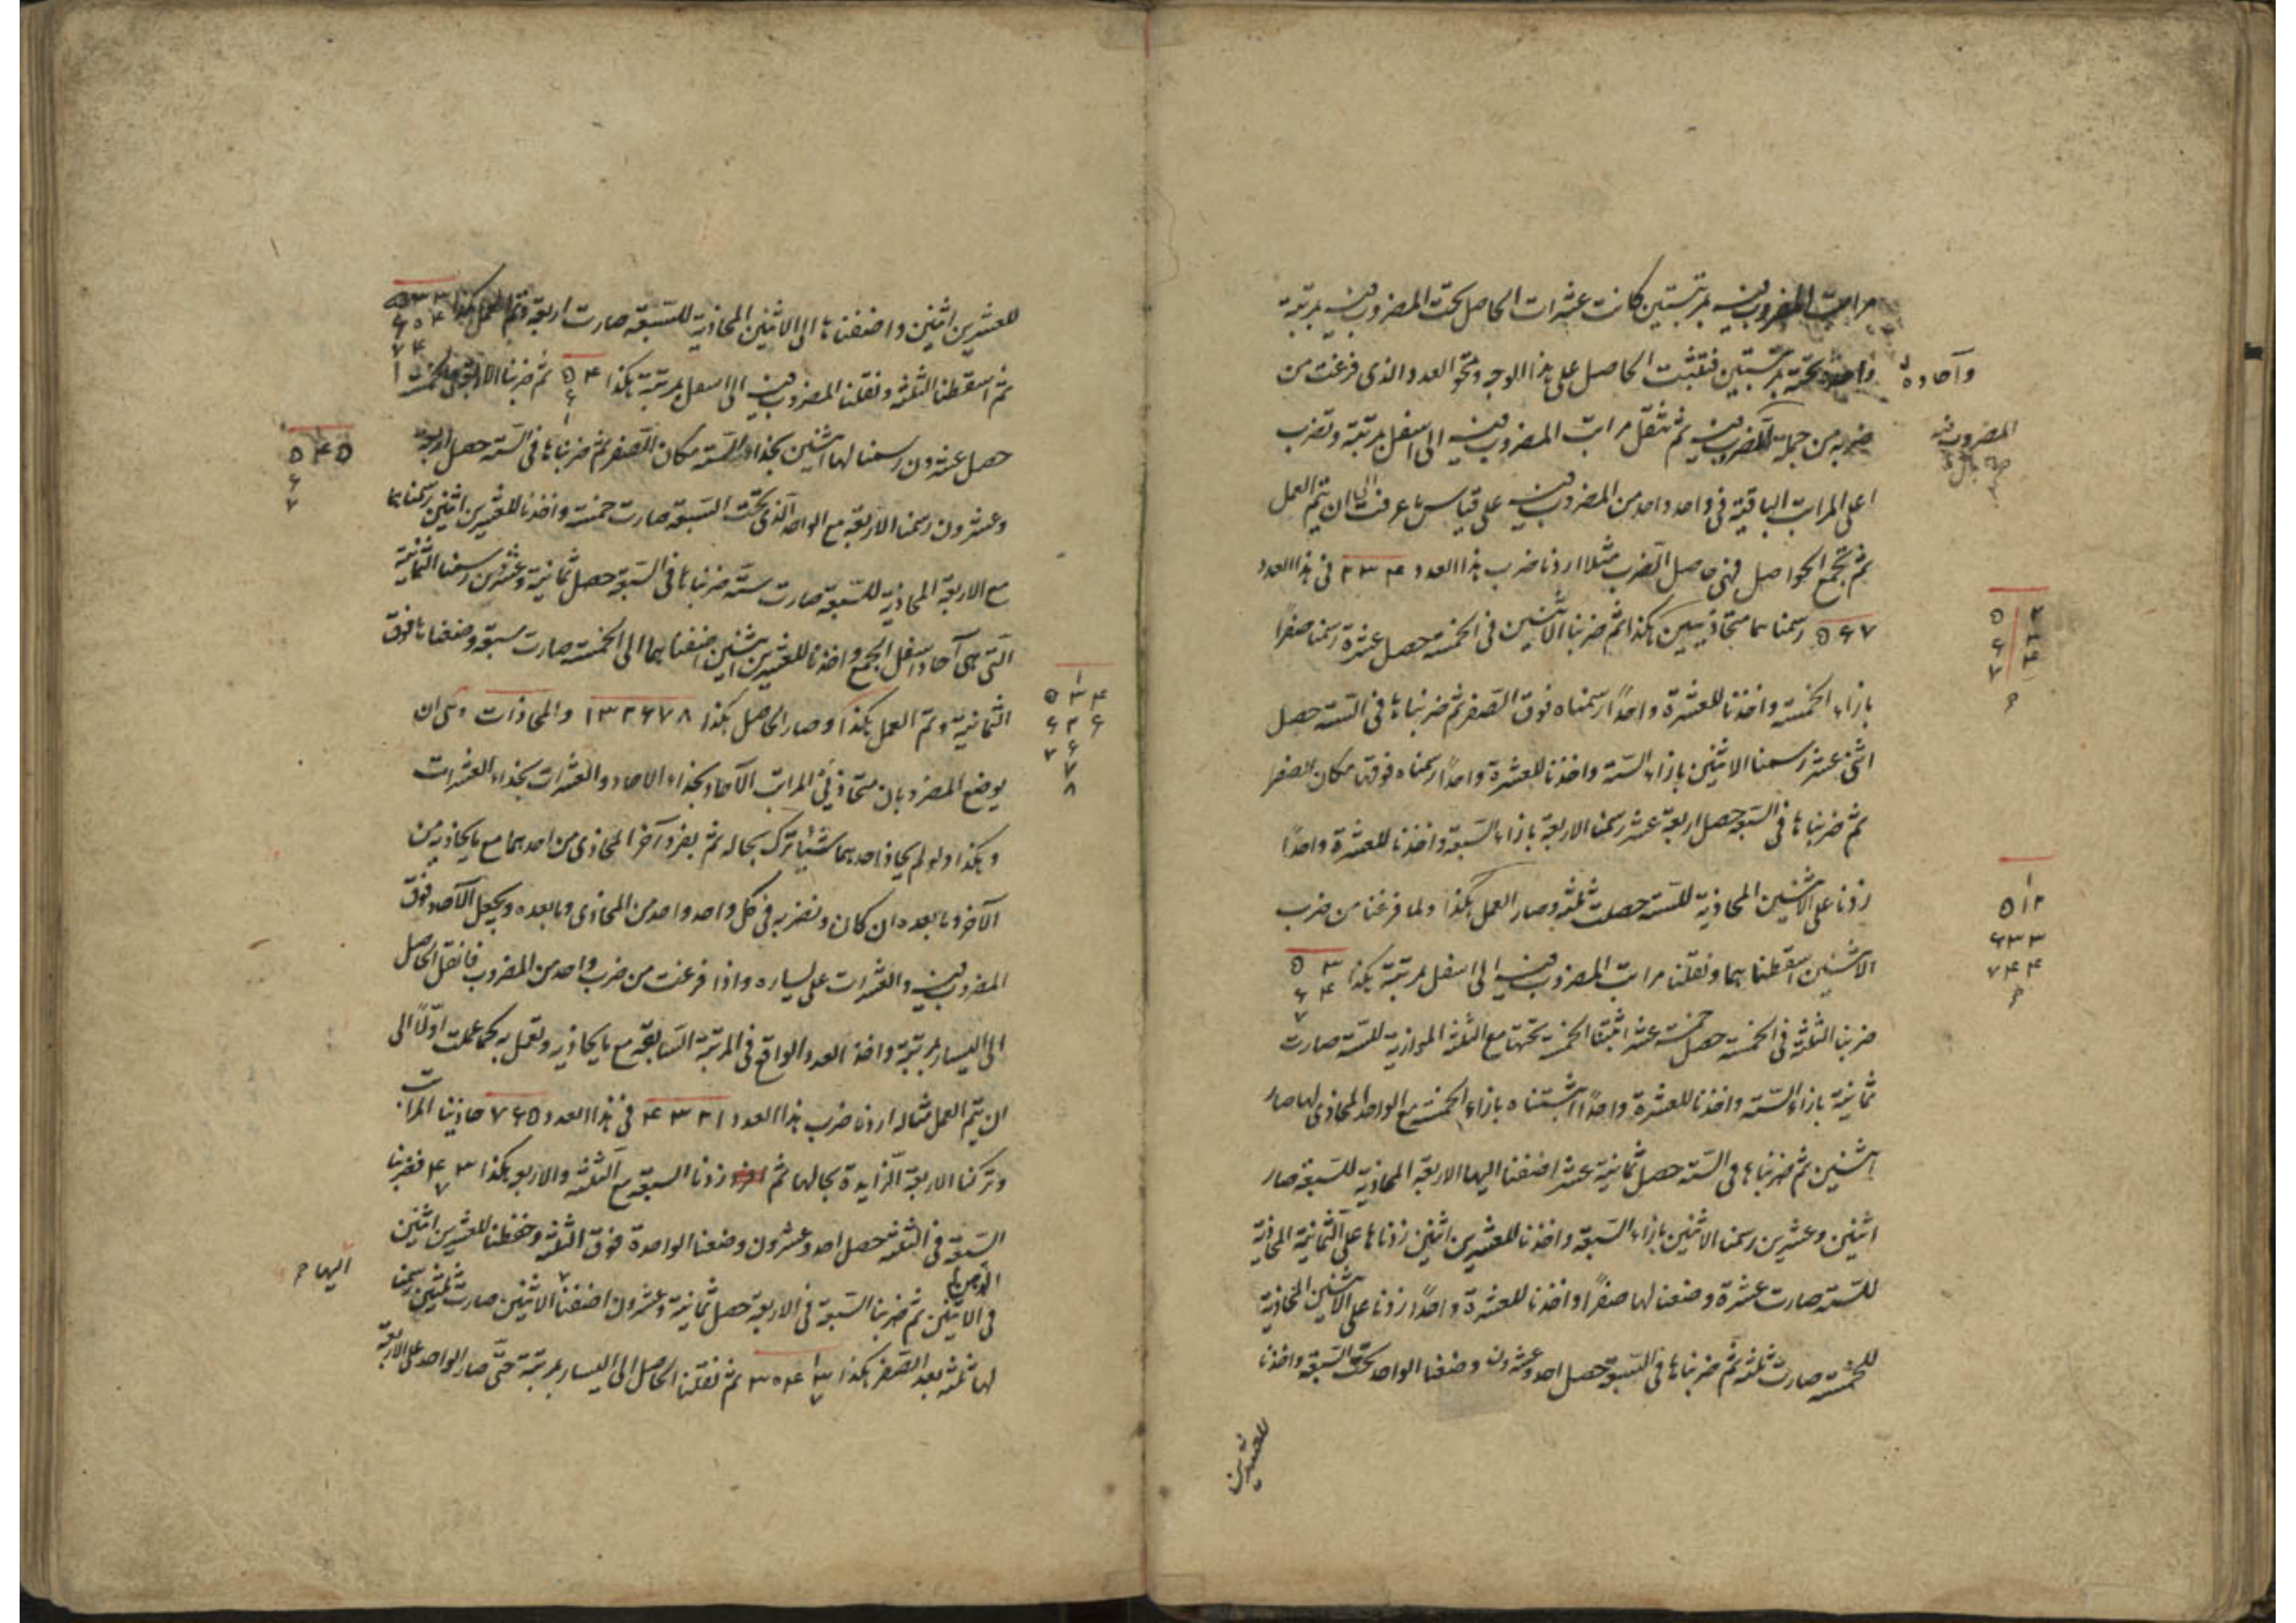 مراتب المضروب فيه بمرتبتين كانت عشرات الحاصل تحت المضروب فيه بمرتبة
وآحاده
واحاده تحته بمرتبتين فتثبت الحاصل على هذا الوجه وتمحو العدد الذى فرغت من
المضروب فيه
ضربه من جملة المضروب فيه ثم تنقل مراتب المضروب فيه الى اسفل بمرتبة وتضرب
اعلى المراتب الباقية فى واحد واحد من المضروب فيه على قياس ما عرفت الى ان يتم العمل
ثم تجمع الحواصل فهى حاصل الضرب مثلا اردنا ضرب هذا العدد ۲۳۴ فى هذا العدد
۵۶۷ رسمناهما متحاذيين هكذا ثم ضربنا الاثنين فى الخمسة حصل عشرة رسمنا صفرًا
۲ ۵
۳ ۶
۴ ۷
بازاء الخمسة واخذنا للعشرة واحدًا رسمناه فوق الصفر ثم ضربناها فى الستة حصل
اثنى عشر رسمنا الاثنين بازاء الستة واخذنا للعشرة واحدًا رسمناه فوقها مكان الصفر
ثم ضربناها فى السبعة حصل اربعة عشر رسمنا الاربعة بازاء السبعة واخذنا للعشرة واحدًا
زدنا على الاثنين المحاذية للستة حصلت ثلثة وصار العمل هكذا ولما فرغنا من ضرب
۱
۵۱۲
۶۳۳
۷۴۴
الاثنين اسقطناهما ونقلنا مراتب المضروب فيه الى اسفل بمرتبة هكذا ۵ ۳
۶ ۴
۷
ضربنا الثلثة فى الخمسة حصل خمسة عشر اثبتنا الخمسة تحتها مع الثلثة الموازية للستة صارت
ثمانية بازاء الستة واخذنا للعشرة واحدًا اثبتناه بازاء الخمسة مع الواحد المحاذى لها صار
اثنين ثم ضربناها فى الستة حصل ثمانية عشر اضفنا اليها الاربعة المحاذية للسبعة صار
اثنين وعشرين رسمنا الاثنين بازاء السبعة واخذنا للعشرين اثنين زدناها على الثمانية المحاذية
للستة صارت عشرة وضعنا لها صفرًا واخذنا للعشرة واحدًا زدنا على الاثنين المحاذية
للخمسة صارت ثلثة ثم ضربناها فى السبعة حصل احد وعشرون وضعنا الواحد تحت السبعة واخذنا
للعشرين
للعشرين اثنين واضفناها الى الاثنين المحاذية للسبعة صارت اربعة وتم العمل هكذا ۵۳۳
۶۰۴
۷۴
۱
ثم اسقطنا الثلثة ونقلنا المضروب فيه الى اسفل بمرتبة هكذا ۵۴ ثم ضربنا الاربعة فى الخمسة
۶
حصل عشرون رسمنا لها اثنين بحذاء الستة مكان الصفر ثم ضربناها فى الستة حصل اربعة
۵۴۵
۶
۷
وعشرون رسمنا الاربعة مع الواحد الذى تحت السبعة صارت خمسة واخذنا للعشرين اثنين رسمناها
مع الاربعة المحاذية للسبعة صارت ستة ضربناها فى السبعة حصل ثمانية وعشرين رسمنا الثمانية
التى هى آحاد اسفل الجمع واخذنا للعشرين اثنين اضفناهما الى الخمسة صارت سبعة وضعناها فوق
الثمانية وتم العمل هكذا وصار الحاصل هكذا ۱۳۲۶۷۸ والمحاذات وهى ان
۱
۵۳۴
۶۲۶
۷۶
۷
۸
يوضع المضروبان متحاذيى المراتب الآحاد بحذاء الاحاد والعشرات بحذاء العشرات
وهكذا ولو لم يحاذ احدهما شيئًا ترك بحاله ثم يفرد آخر المحاذى من احدهما مع ما يحاذيه من
الآخر وما بعده ان كان وتضربه فى كل واحد واحد من المحاذى وما بعده ويجعل الآحاد فوق
المضروب فيه والعشرات على يساره واذا فرغت من ضرب واحد من المضروب فانقل الحاصل
الى اليسار بمرتبة واخذ العدد الواقع فى المرتبة السابقة مع ما يحاذيه وتعمل به كما عملت اولًا الى
ان يتم العمل مثاله اردنا ضرب هذا العدد ۴۳۲۱ فى هذا العدد ۷۶۵ حاذينا المراتب
وتركنا الاربعة الزايدة بحالها ثم زدنا السبعة مع الثلثة والاربعة هكذا ۴۳ فضربنا
۷
السبعة فى الثلثة حصل احد وعشرون وضعنا الواحدة فوق الثلثة وحفظنا للعشرين اثنين
فى الاثنين ثم ضربنا السبعة فى الاربعة حصل ثمانية وعشرون اضفنا الاثنين صارت ثلثين رسمنا
اليها
لها ثلثة بعد الصفر هكذا ۳۰۴۳ ثم نقلنا الحاصل الى اليسار بمرتبة حتى صار الواحد على الاربعة